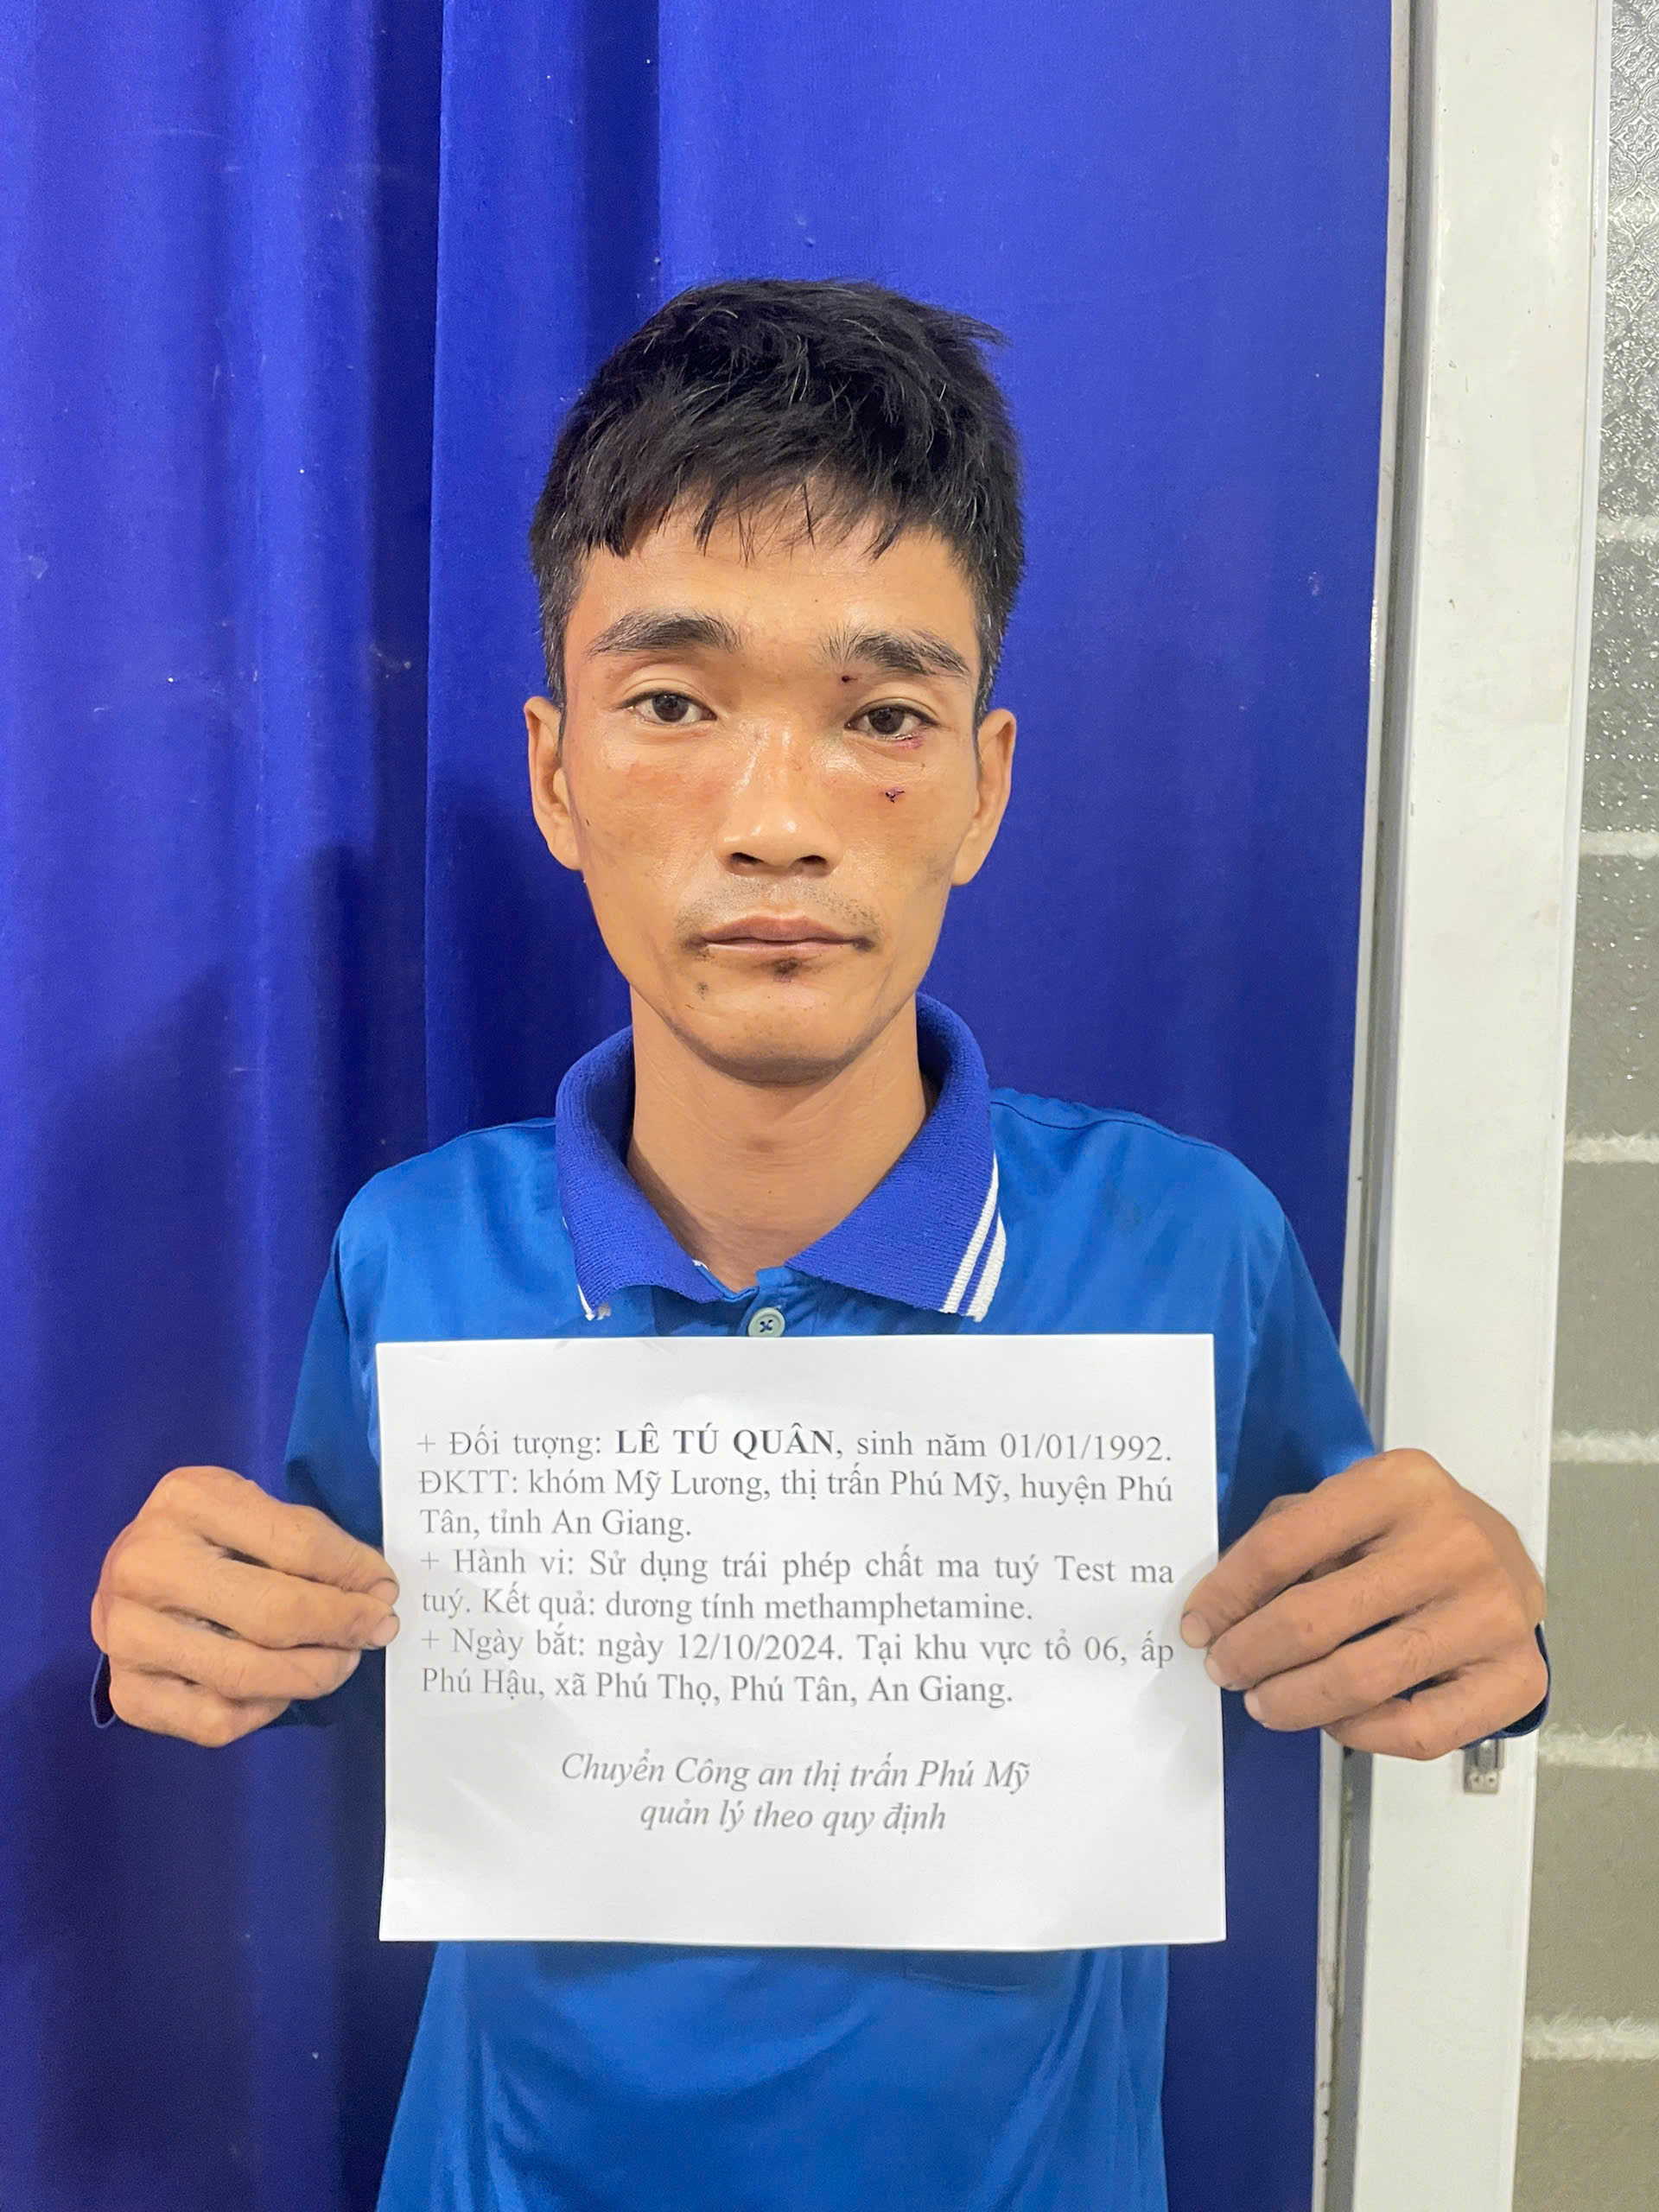 + Đối tượng: LÊ TÚ QUÂN, sinh năm 01/01/1992.
ĐKTT: khóm Mỹ Lương, thị trấn Phú Mỹ, huyện Phú
Tân, tỉnh An Giang.
+ Hành vi: Sử dụng trái phép chất ma tuý Test ma
tuý. Kết quả: dương tính methamphetamine.
+ Ngày bắt: ngày 12/10/2024. Tại khu vực tổ 06, ấp
Phú Hậu, xã Phú Thọ, Phú Tân, An Giang.
Chuyển Công an thị trấn Phú Mỹ
quản lý theo quy định